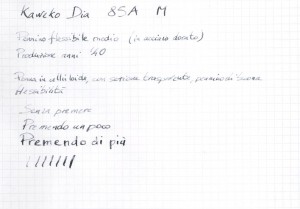 Kaweko Dia 85A M
Pennino flessibile medio (in acciaio dorato)
Produzione anni '40
Penna in celluloide, con sezione trasparente, pennino di buona
flessibilità
Senza premere
Premendo un poco
Premendo di più